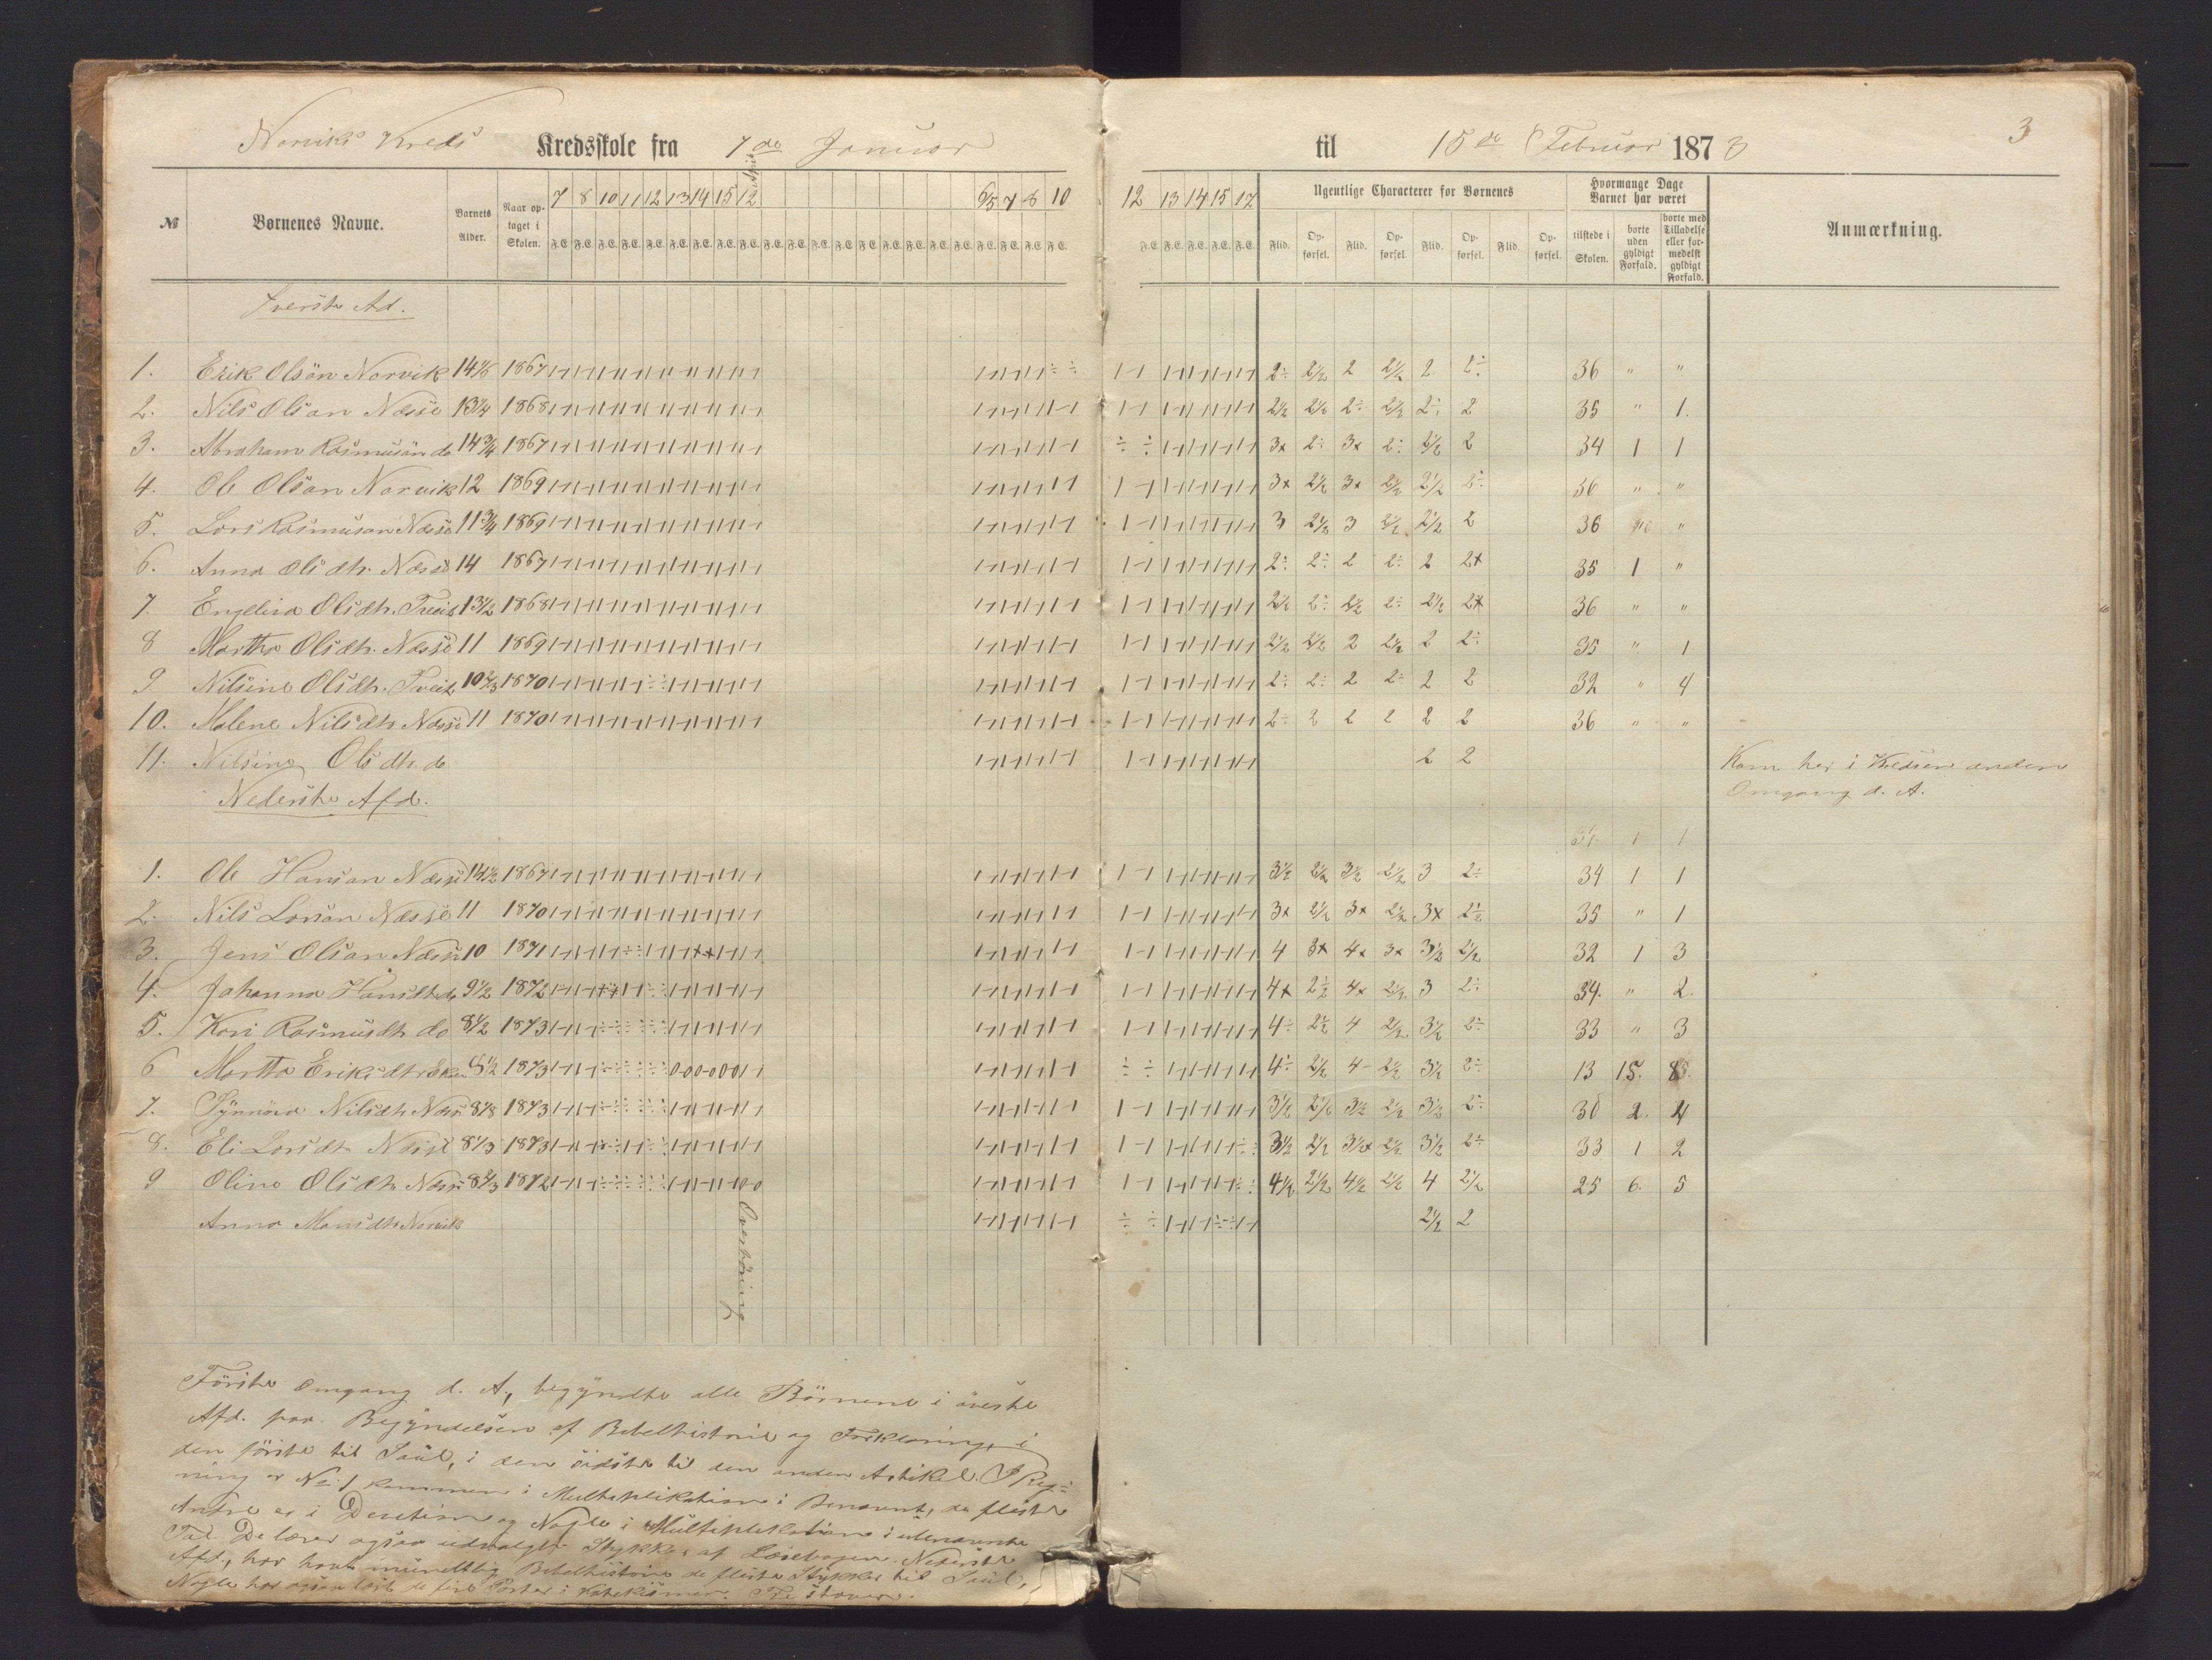 3
Norviks Kreds Kredsskole fra 7de Januar til 15de Februar 1873
№ Børnenes Navne. Barnets Alder. Naar optaget i Skolen. 7 8 10 11 12 13 14 15 12 6/5 7 8 10 12 13 14 15 17 Ugentlige Characterer for Børnenes Hvormange Dage Barnet har været Anmærkning.
F.E. F.E. F.E. F.E. F.E. F.E. F.E. F.E. F.E. F.E. F.E. F.E. F.E. F.E. F.E. F.E. F.E. F.E. F.E. F.E. F.E. F.E. F.E. F.E. F.E. F.E. F.E. Flid. Opførsel. Flid. Opførsel. Flid. Opførsel. Flid. Opførsel. tilstede i Skolen. borte uden gyldigt Forfald. borte med Tilladelse eller formedelst gyldigt Forfald.
Øverste Ad.
1. Erik Olsön Norvik 14 1/6 1867 2÷ 2½ 2 2½ 2 2÷ 36 " "
2. Nils Olsön Næsse 13¼ 1868 2½ 2½ 2÷ 2½ 2÷ 2 35 " 1.
3. Abraham Rasmusön do 14¾ 1867 3x 2÷ 3x 2÷ 2½ 2 34 1 1
4. Ole Olsön Norvik 12 1869 3x 2½ 3x 2½ 2½ 2÷ 36 " "
5. Lars Rasmusön Næsse 11¾ 1869 3 2½ 3 2½ 2½ 2 36 " "
6. Anna Olsdtr. Næsse 14 1867 2÷ 2÷ 2 2÷ 2 2x 35 1 "
7. Engelina Olsdtr. 13½ 1868 2½ 2÷ 2½ 2÷ 2½ 2x 36 " "
8 Martha Olsdtr. Næsse 11 1869 2½ 2½ 2 2½ 2 2÷ 35 " 1
9 Nilsine Olsdtr. 10⅔ 1870 2÷ 2÷ 2 2÷ 2 2 32 " 4
10. Malene Nilsdtr Næsse 11 1870 2÷ 2 2 2 2 2 36 " "
11. Nilsine Olsdtr. do 2 2 Kom her i Kredsen anden
Omgang d. A.
Nederste Afd.
34 1 1
1. Ole Hansön Næsse 14½ 1867 3½ 2½ 3½ 2½ 3 2÷ 34 1 1
2. Nils Larsön Næsse 11 1870 3x 2½ 3x 2½ 3x 2½ 35 " 1
3. Jens Olsön Næsse 10 1871 4 3x 4x 3x 3½ 2½ 32 1 3
4. Johanna Hansdtr do 9½ 1872 4x 2½ 4x 2½ 3 2÷ 34. " 2.
5. Kari Rasmusdtr do 8½ 1873 4÷ 2½ 4 2½ 3½ 2÷ 33 " 3
6 Martha Eriksdtr 8½ 1873 4÷ 2½ 4- 2½ 3½ 2÷ 13 15. 8.
7. Synnöva Nilsdtr Næss 8⅛ 1873 3½ 2½ 3½ 2½ 3½ 2÷ 30 2. 4
8. Eli Larsdtr Næsse 8⅓ 1873 3½ 2½ 3½x 2½ 3½ 2÷ 33 1 2
9 Oline Olsdtr Næsse 8⅔ 1872 4½ 2½ 4½ 2½ 4 2½ 25 6. 5
Anna Monsdtr Norvik 2½ 2
Overhöring
Förste Omgang d. A., begyndte alle Börnene i överste
Afd. paa Begyndelsen af Bibelhistorie og Forklaring, i
den förste til Saul, i den sidste til den anden Artikel. I Reg-
ning er No 1 kommen i Multiplikation i Benævnt, de fleste
Andre er i Division og Nogle i Multiplikation i ubenævnte
Tal. De lærer ogsaa udvalgte Stykker af Læsebogen. Nederste
Afd., har havt mundtlig Bibelhistorie de fleste Stykker til Saul,
Nogle har ogsaa læst de fire Parter i Katekismen. stover.